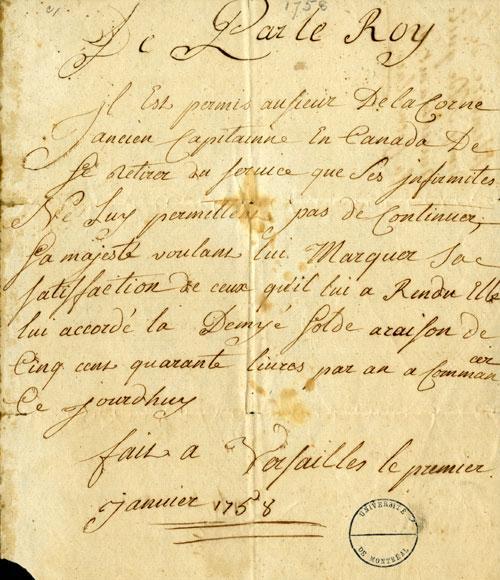 1758
De Par le Roy
jl Est permis au sieur De la Corne
ancien Capitainne En Canada De
se retirer du service que ses jnfirmites
Ne Luy permittens pas de Continuer,
sa majesté voulant lui Marquer sae
satisffaction de ceux qu'il lui a Rendu Elle
lui accordé la Demyé solde araison de
Cinq cent quarante livres par an a Commancer
Ce jourdhuy
fait a Versailles le premier
janvier 1758
UNIVERSITÉ
DE MONTRÉAL